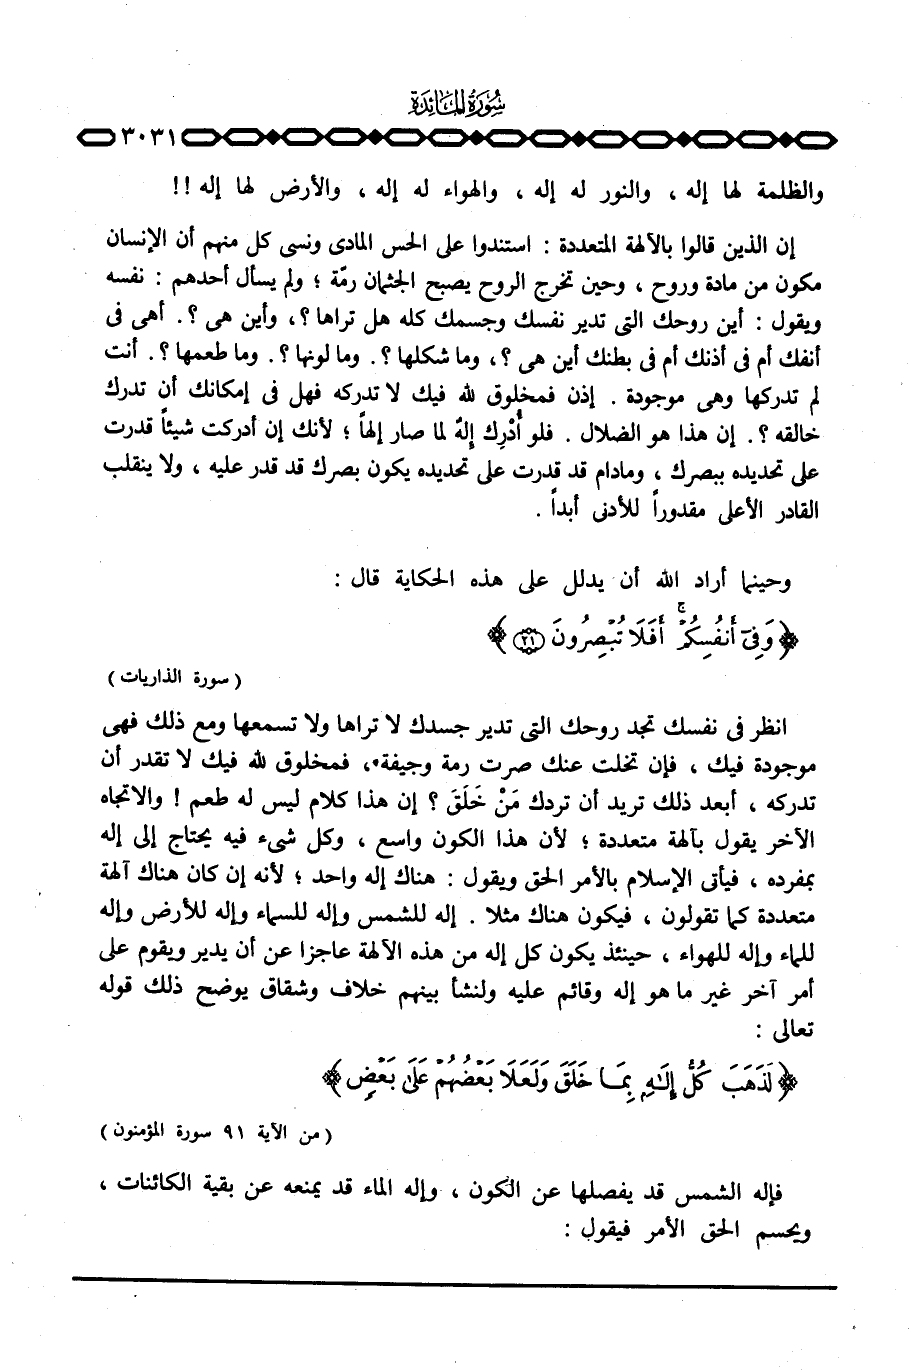 سُورَةُ المَائِدَة
٣٠٣١
والظلمة لها إله ، والنور له إله ، والهواء له إله ، والأرض لها إله !!
إن الذين قالوا بالآلهة المتعددة : استندوا على الحس المادى ونسى كل منهم أن الإنسان
مكون من مادة وروح ، وحين تخرج الروح يصبح الجثمان رمّة ؛ ولم يسأل أحدهم : نفسه
ويقول : أين روحك التى تدير نفسك وجسمك كله هل تراها ؟، وأين هى ؟. أهى فى
أنفك أم فى أذنك أم فى بطنك أين هى ؟، وما شكلها ؟. وما لونها ؟. وما طعمها ؟. أنت
لم تدركها وهى موجودة . إذن فمخلوق لله فيك لا تدركه فهل فى إمكانك أن تدرك
خالقه ؟. إن هذا هو الضلال . فلو أُدْرِك إلهٌ لما صار إلهاً ؛ لأنك إن أدركت شيئاً قدرت
على تحديده ببصرك ، ومادام قد قدرت على تحديده يكون بصرك قد قدر عليه ، ولا ينقلب
القادر الأعلى مقدوراً للأدنى أبداً .
وحينما أراد الله أن يدلل على هذه الحكاية قال :
﴿ وَفِىٓ أَنفُسِكُمْ ۚ أَفَلَا تُبْصِرُونَ ٢١ ﴾
( سورة الذاريات )
انظر فى نفسك تجد روحك التى تدير جسدك لا تراها ولا تسمعها ومع ذلك فهى
موجودة فيك ، فإن تخلت عنك صرت رمة وجيفة، فمخلوق لله فيك لا تقدر أن
تدركه ، أبعد ذلك تريد أن تردك مَنْ خَلَقَ ؟ إن هذا كلام ليس له طعم ! والاتجاه
الآخر يقول بآلهة متعددة ؛ لأن هذا الكون واسع ، وكل شىء فيه يحتاج إلى إله
بمفرده ، فيأتى الإسلام بالأمر الحق ويقول : هناك إله واحد ؛ لأنه إن كان هناك آلهة
متعددة كما تقولون ، فيكون هناك مثلا . إله للشمس وإله للسماء وإله للأرض وإله
للماء وإله للهواء ، حينئذ يكون كل إله من هذه الآلهة عاجزا عن أن يدير ويقوم على
أمر آخر غير ما هو إله وقائم عليه ولنشأ بينهم خلاف وشقاق يوضح ذلك قوله
تعالى :
﴿ لَذَهَبَ كُلُّ إِلَٰهٍ بِمَا خَلَقَ وَلَعَلَا بَعْضُهُمْ عَلَىٰ بَعْضٍ ﴾
( من الآية ٩١ سورة المؤمنون )
فإله الشمس قد يفصلها عن الكون ، وإله الماء قد يمنعه عن بقية الكائنات ،
ويحسم الحق الأمر فيقول :